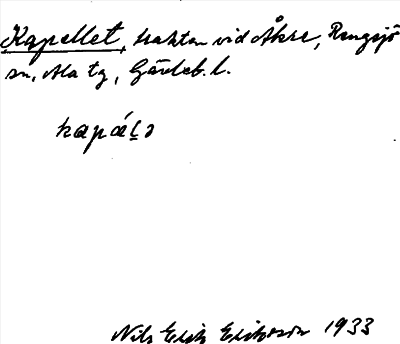 Kapellet, trakten vid Åkre, Rengsjö
sn, Ala tg, Gävleb. l.
kapáḷə
Nils Erik Erikson 1933